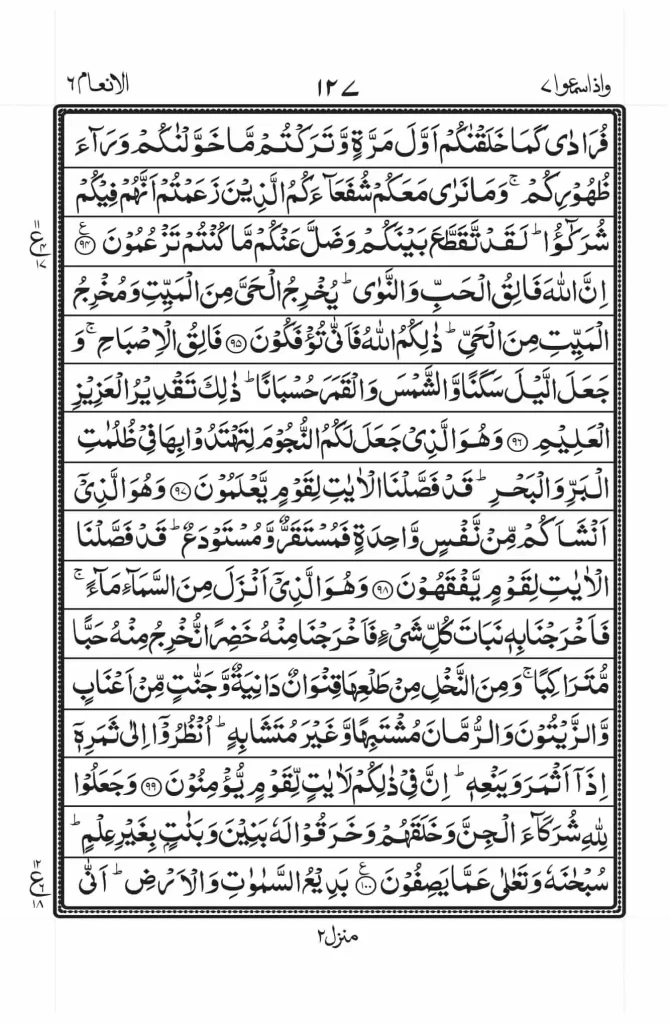 واذاسمعوا ٧ ١٢٧ الانعام ٦
فُرَادٰى كَمَا خَلَقْنٰكُمْ اَوَّلَ مَرَّةٍ وَّتَرَكْتُمْ مَّا خَوَّلْنٰكُمْ وَرَآءَ
ظُهُوْرِكُمْ ۚ وَمَا نَرٰى مَعَكُمْ شُفَعَآءَكُمُ الَّذِيْنَ زَعَمْتُمْ اَنَّهُمْ فِيْكُمْ
شُرَكٰٓؤُا ؕ لَقَدْ تَّقَطَّعَ بَيْنَكُمْ وَضَلَّ عَنْكُمْ مَّا كُنْتُمْ تَزْعُمُوْنَ ﴿٩٤﴾ ع ١١ ٤ ١٧
اِنَّ اللّٰهَ فَالِقُ الْحَبِّ وَالنَّوٰى ؕ يُخْرِجُ الْحَىَّ مِنَ الْمَيِّتِ وَمُخْرِجُ
الْمَيِّتِ مِنَ الْحَىِّ ؕ ذٰلِكُمُ اللّٰهُ فَاَنّٰى تُؤْفَكُوْنَ ﴿٩٥﴾ فَالِقُ الْاِصْبَاحِ ۚ وَ
جَعَلَ الَّيْلَ سَكَنًا وَّالشَّمْسَ وَالْقَمَرَ حُسْبَانًا ؕ ذٰلِكَ تَقْدِيْرُ الْعَزِيْزِ
الْعَلِيْمِ ﴿٩٦﴾ وَهُوَ الَّذِىْ جَعَلَ لَكُمُ النُّجُوْمَ لِتَهْتَدُوْا بِهَا فِىْ ظُلُمٰتِ
الْبَرِّ وَالْبَحْرِ ؕ قَدْ فَصَّلْنَا الْاٰيٰتِ لِقَوْمٍ يَّعْلَمُوْنَ ﴿٩٧﴾ وَهُوَ الَّذِىْۤ
اَنْشَاَكُمْ مِّنْ نَّفْسٍ وَّاحِدَةٍ فَمُسْتَقَرٌّ وَّمُسْتَوْدَعٌ ؕ قَدْ فَصَّلْنَا
الْاٰيٰتِ لِقَوْمٍ يَّفْقَهُوْنَ ﴿٩٨﴾ وَهُوَ الَّذِىْۤ اَنْزَلَ مِنَ السَّمَآءِ مَآءً ۚ
فَاَخْرَجْنَا بِهٖ نَبَاتَ كُلِّ شَىْءٍ فَاَخْرَجْنَا مِنْهُ خَضِرًا نُّخْرِجُ مِنْهُ حَبًّا
مُّتَرَاكِبًا ۚ وَمِنَ النَّخْلِ مِنْ طَلْعِهَا قِنْوَانٌ دَانِيَةٌ وَّجَنّٰتٍ مِّنْ اَعْنَابٍ
وَّالزَّيْتُوْنَ وَالرُّمَّانَ مُشْتَبِهًا وَّغَيْرَ مُتَشَابِهٍ ؕ اُنْظُرُوْۤا اِلٰى ثَمَرِهٖۤ
اِذَاۤ اَثْمَرَ وَيَنْعِهٖ ؕ اِنَّ فِىْ ذٰلِكُمْ لَاٰيٰتٍ لِّقَوْمٍ يُّؤْمِنُوْنَ ﴿٩٩﴾ وَجَعَلُوْا
لِلّٰهِ شُرَكَآءَ الْجِنَّ وَخَلَقَهُمْ وَخَرَقُوْا لَهٗ بَنِيْنَ وَبَنٰتٍۭ بِغَيْرِ عِلْمٍ ؕ
سُبْحٰنَهٗ وَتَعٰلٰى عَمَّا يَصِفُوْنَ ﴿١٠٠﴾ بَدِيْعُ السَّمٰوٰتِ وَالْاَرْضِ ؕ اَنّٰى ع ١٢ ٦ ١٨
منزل ٢